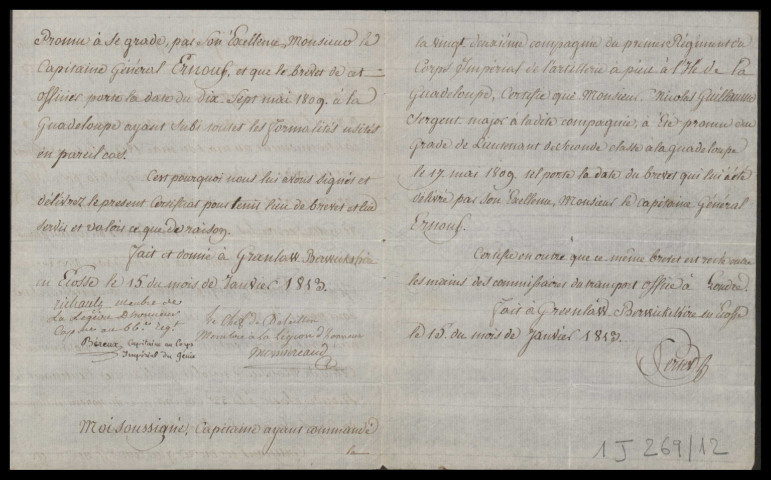 Promu à se grade, par Son Excellence, Monsieur le
Capitaine Général Ernouf, et que le brevet de cet
officier porte la date du dix Sept mai 1809. à la
Guadeloupe ayant Subi toutes les formalités usités
en pareil cas.
C'est pourquoi nous lui avons Signés et
délivrez le present Certificat pour tenir lieu de brevet et lui
servir et valoir ce que de raison.
Fait et donné à Greenlaw Berwickshire
en Ecosse le 15 du mois de Janvier 1813.
membre de
La Légion D'honneur
Capne au 66me Regt
Béreux, Capitaine au Corps
Impérial du Génie
le Chef de Bataillon
Membre de la Légion d'honneur
Moi Soussigné, Capitaine ayant commandé
la
la vingt deuxième compagnie du premier Régiment du
Corps Impérial de l'artillerie à pied à l'Ile de La
Guadeloupe, Certifie que Monsieur Nicolas Guillaume
Sergent major à ladite compagnie, à Eté promu au
Grade de Lieutenant de seconde classe à la guadeloupe
le 17 mai 1809. tel porte la date du brevet qui lui a été
délivré par Son Excellence, Monsieur le capitaine Général
Ernouf.
Certifie en outre que ce même brevet est resté entre
les mains des commissaires du transport office à Londre.
Fait à Greenlaw Berwickshire en Ecosse
le 15 du mois de Janvier 1813.
1 J 269/12